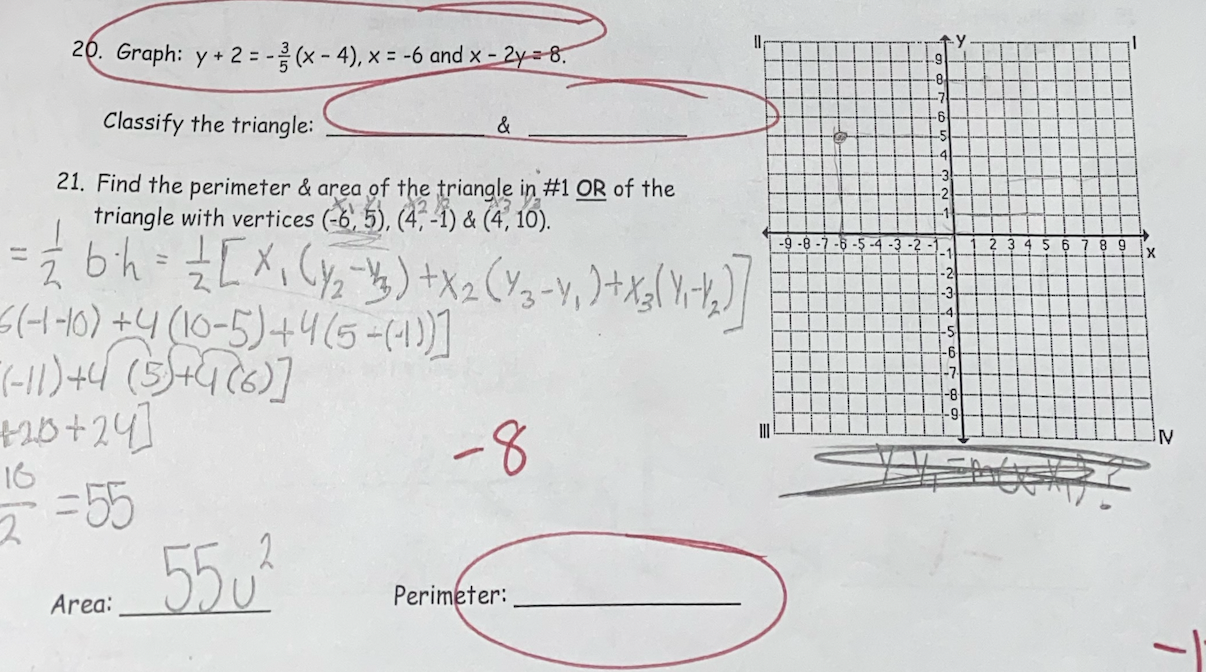 20. Graph: y + 2 = -3/5 (x - 4), x = -6 and x - 2y = 8.
Classify the triangle: ____________ & ____________
21. Find the perimeter & area of the triangle in #1 OR of the
x1 y1 x2 y2 x3 y3
triangle with vertices (-6, 5), (4, -1) & (4, 10).
= 1/2 b·h = 1/2 [x₁(y₂-y₃)+x₂(y₃-y₁)+x₃(y₁-y₂)]
6(-1-10)+4(10-5)+4(5-(-1))]
(-11)+4(5)+4(6)]
+20+24]
10/2 = 55
-8
Area: 55u²
Perimeter: ____________
II y I
9
8
7
6
5
4
3
2
1
-9 -8 -7 -6 -5 -4 -3 -2 -1 1 2 3 4 5 6 7 8 9 x
-1
-2
-3
-4
-5
-6
-7
-8
-9
III IV
y y₁ = m(x-x₁)?
-1